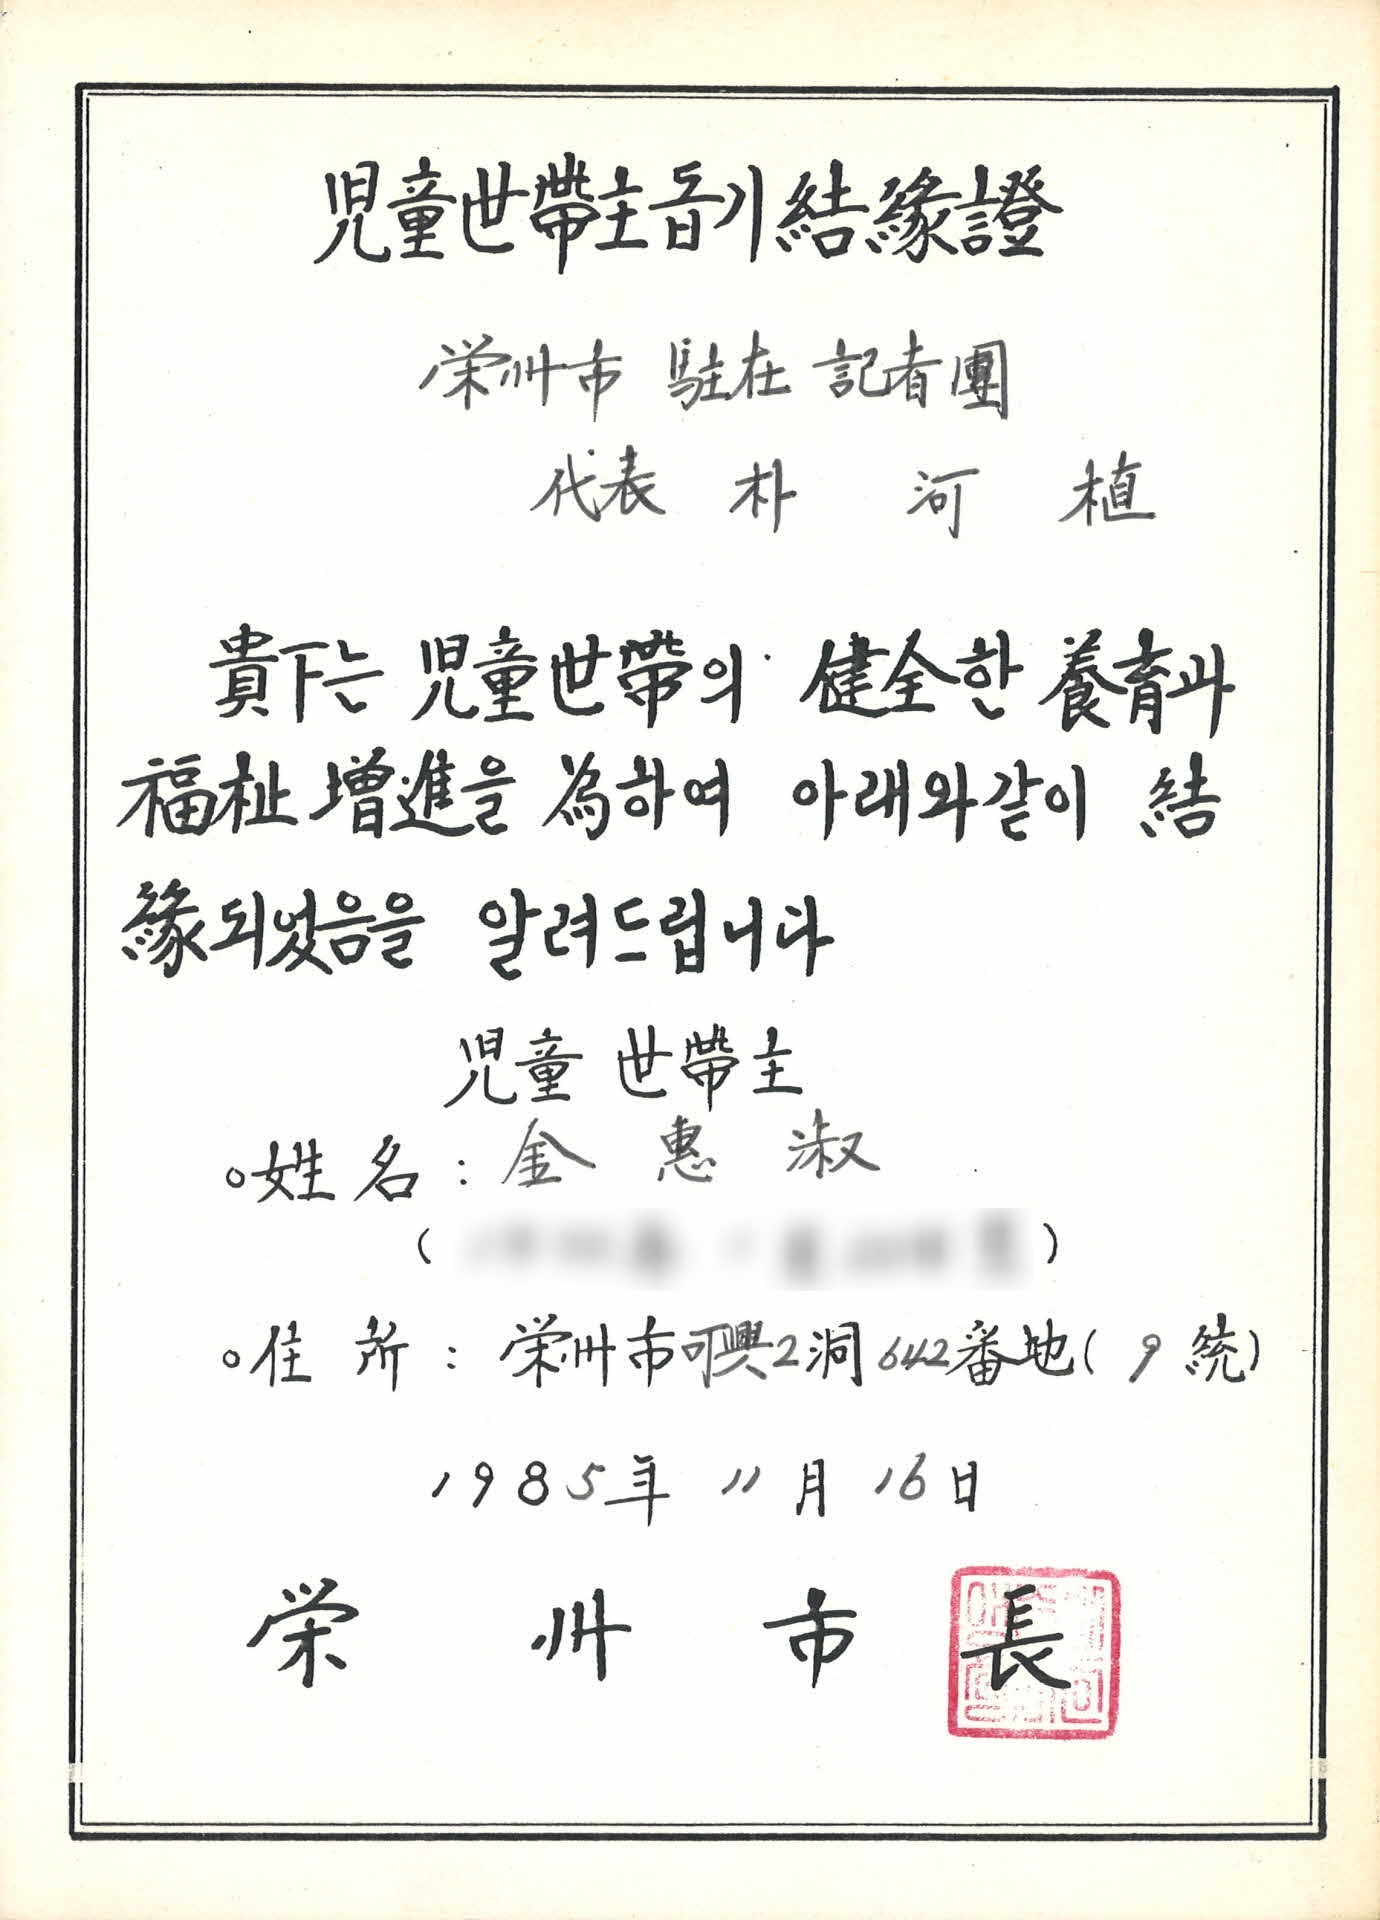 児童世帶主돕기結緣證
栄州市 駐在 記者團
代表 朴 河 植
貴下는 児童世帶의 健全한 養育과
福祉 增進을 為하여 아래와같이 結
緣되었음을 알려드립니다
児童 世帶主
○姓名 : 金 惠 淑
( )
○住所 : 栄州市可興2洞642番地( 9 統)
1985年 11月 16日
栄州市長